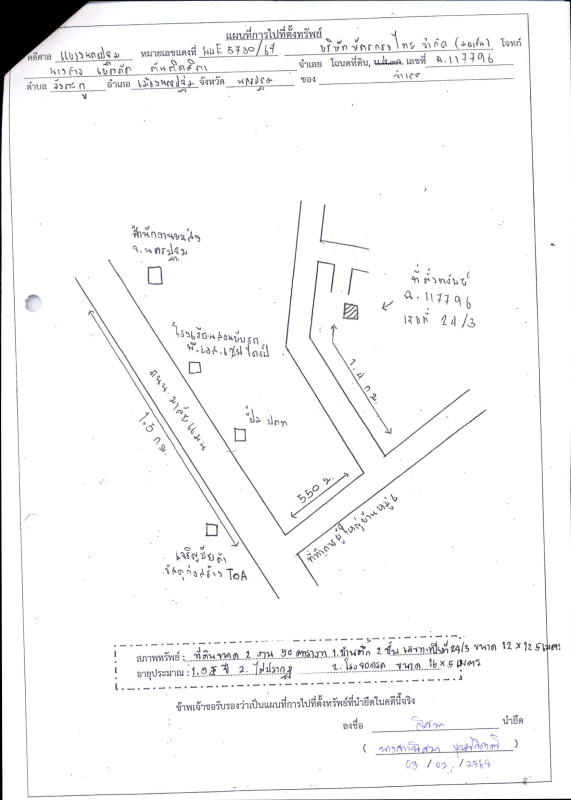 แผนที่การไปที่ตั้งทรัพย์
คดีศาล แขวงนครปฐม หมายเลขแดงที่ ผบE 5730/67 บริษัท บัตรกรุงไทย จำกัด (มหาชน) โจทก์
นางสาว จำเลย โฉนดที่ดิน, น.ส.๓ก เลขที่ ฉ.117796
ตำบล อำเภอ เมืองนครปฐม จังหวัด นครปฐม ของ จำเลย
สำนักงานขนส่ง
จ.นครปฐม
ที่ตั้งทรัพย์
ฉ.117796
เลขที่ 24/3
โรงเรียนสอนขับรถ
พี.เอส.เซฟไดร์ฟ
ถนนมาลัยแมน
1.5 กม.
1.4 กม.
ปั๊ม ปตท
550 ม.
ที่ทำการผู้ใหญ่บ้านหมู่ 6
เจริญชัยค้า
วัสดุก่อสร้าง TOA
สภาพทรัพย์ : ที่ดินขนาด 2 งาน 50 ตารางวา 1.บ้านตึก 2 ชั้น เลขทะเบียนที่ 24/3 ขนาด 12 x 12.5 เมตร
อายุประมาณ : 1. ปี 2. ไม่ปรากฏ 2. โรงจอดรถ ขนาด 16 x 5 เมตร
ข้าพเจ้าขอรับรองว่าเป็นแผนที่การไปที่ตั้งทรัพย์ที่นำยึดในคดีนี้จริง
ลงชื่อ นำยึด
( นางสาว )
03 / 02 / 2568